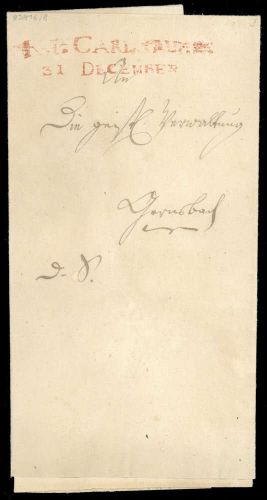 CARLSRUHE
31 DECEMBER
An
Die geistl. Verwaltung
Gernsbach
d. S.